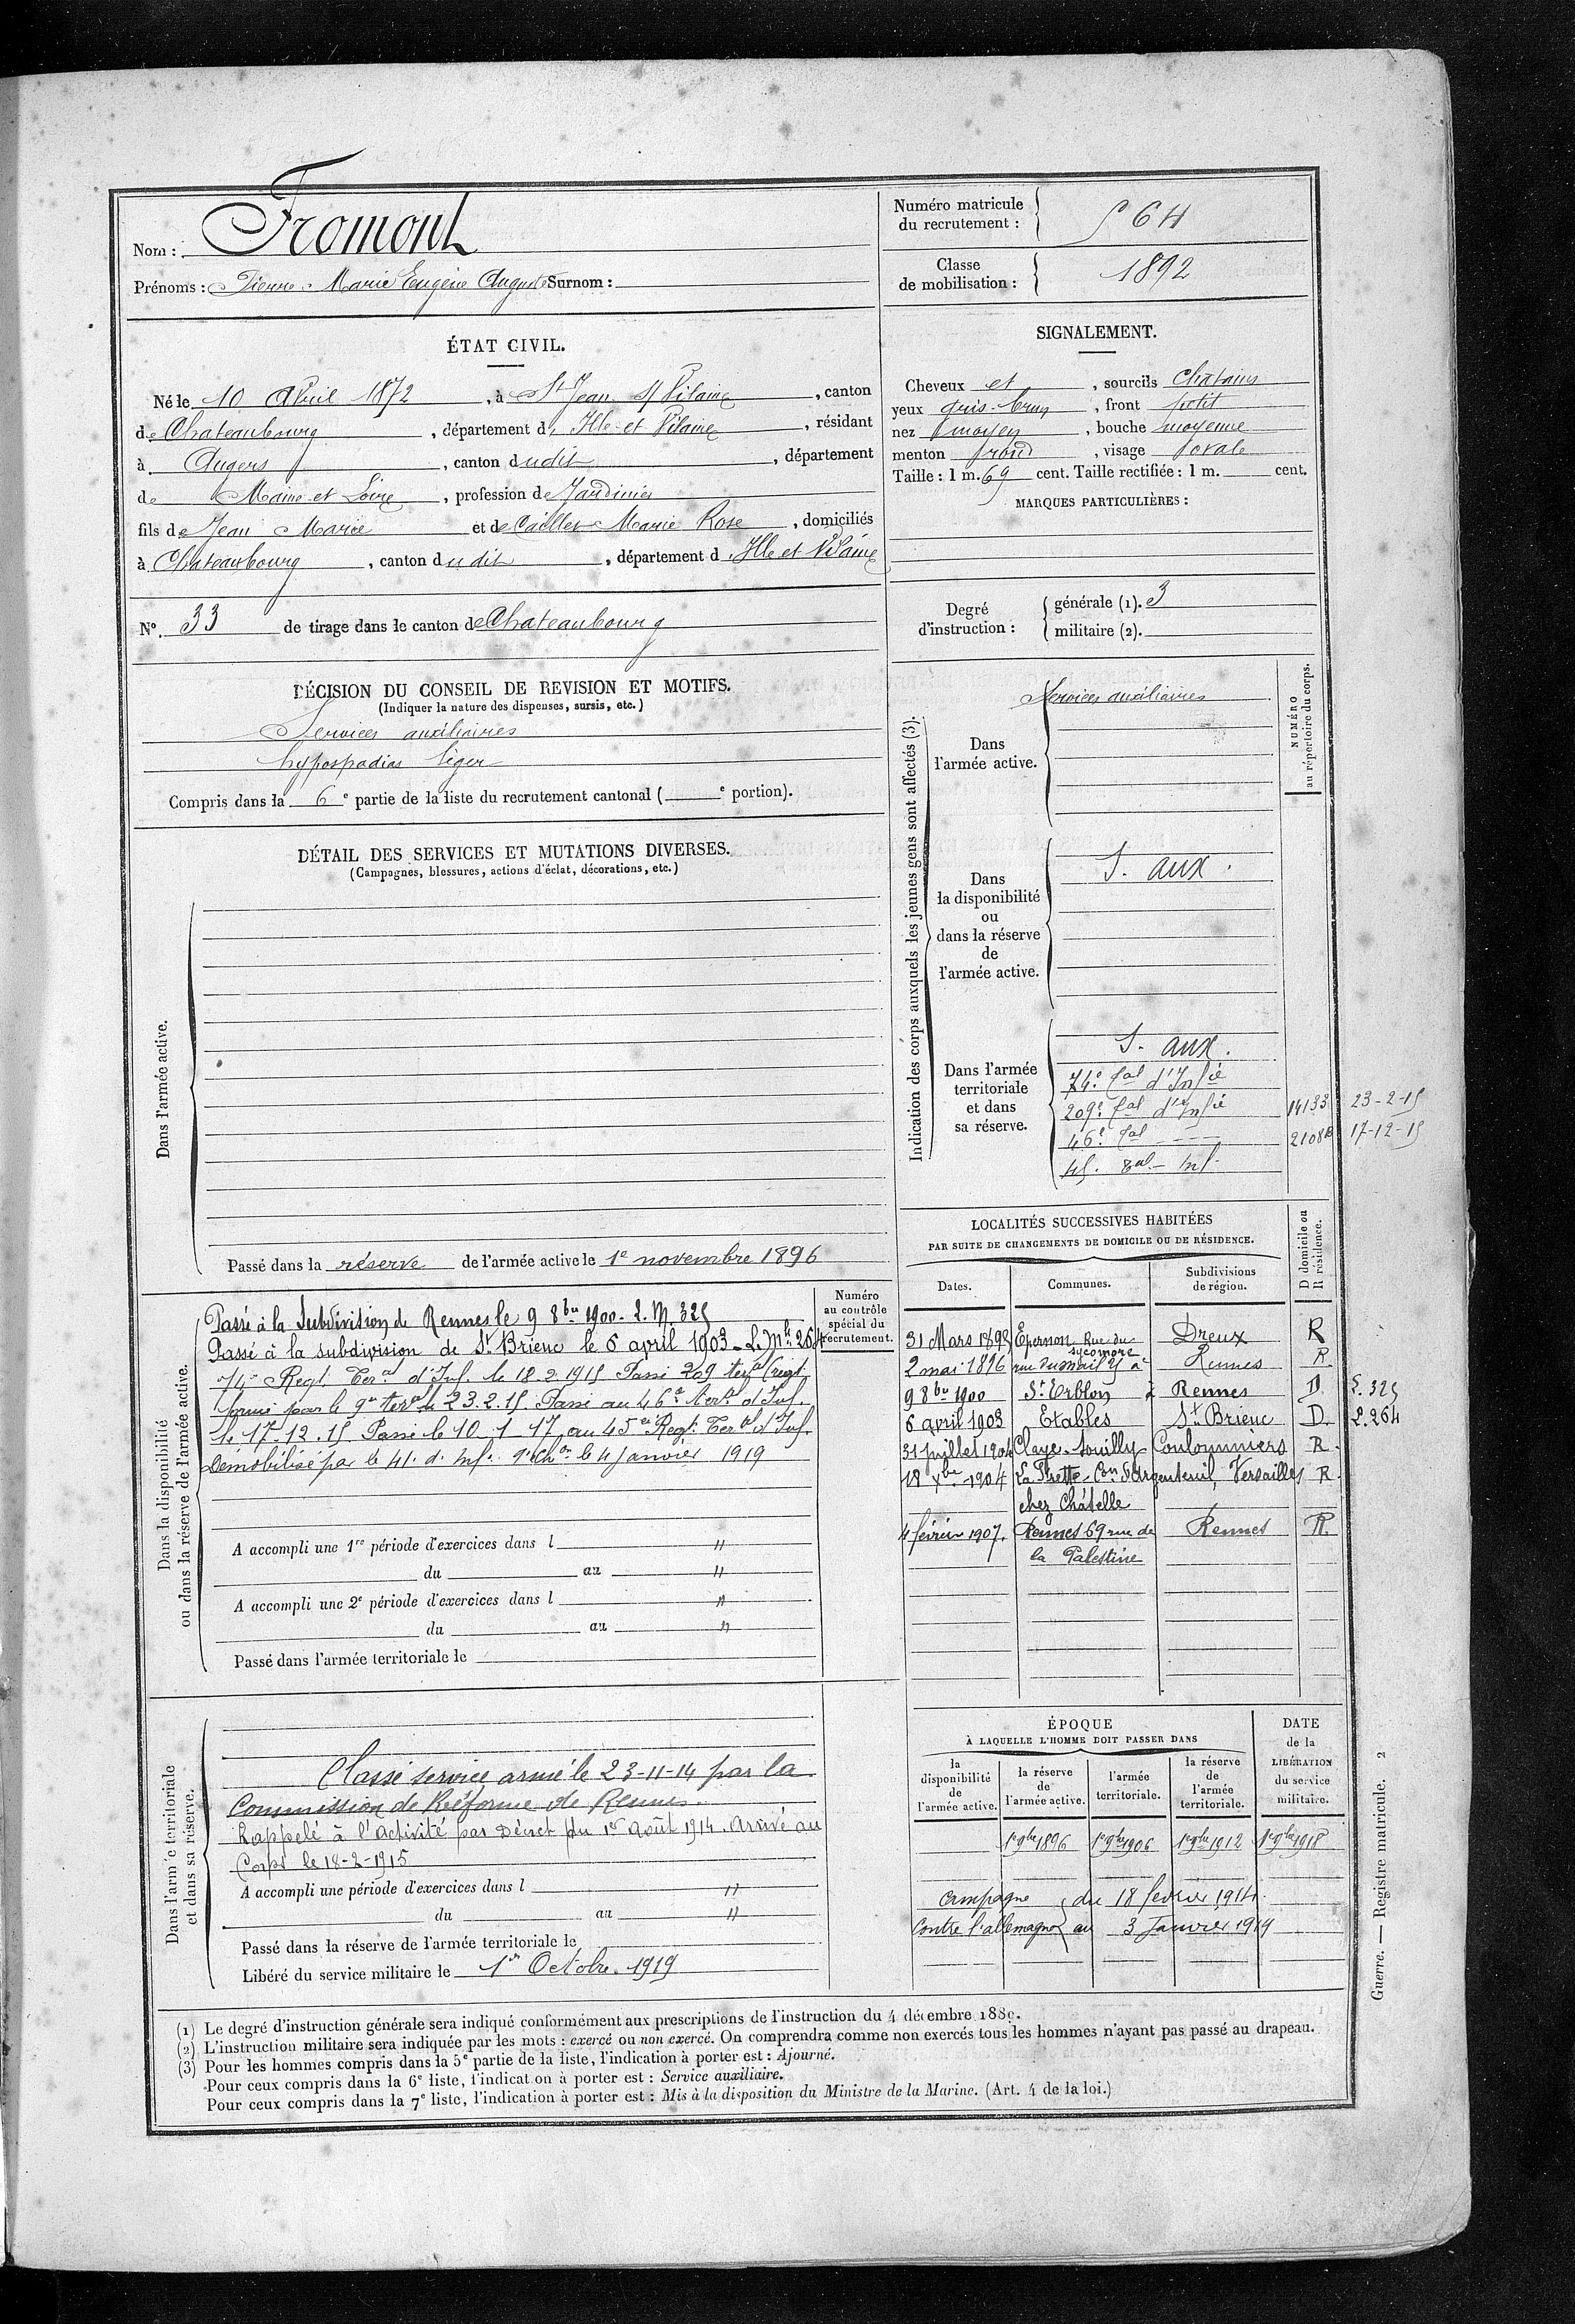 Nom : Fromont
Prénoms : Pierre Marie Eugène Auguste Surnom :
Numéro matricule du recrutement : 564
Classe de mobilisation : 1892
ÉTAT CIVIL.
Né le 10 Avril 1872, à St Jean s/ Vilaine, canton
de Chateaubourg, département d'Ille-et-Vilaine, résidant
à Angers, canton dudit, département
de Maine-et-Loire, profession de Jardinier
fils de Jean Marie et de Caillet Marie Rose, domiciliés
à Chateaubourg, canton dudit, département d Ille et Vilaine
SIGNALEMENT.
Cheveux et, sourcils Chatains
yeux gris-brun, front petit
nez moyen, bouche moyenne
menton rond, visage ovale
Taille : 1 m. 69 cent. Taille rectifiée : 1 m. cent.
MARQUES PARTICULIÈRES :
N°. 33 de tirage dans le canton de Chateaubourg
Degré d'instruction : générale (1). 3
militaire (2).
DÉCISION DU CONSEIL DE REVISION ET MOTIFS.
(Indiquer la nature des dispenses, sursis, etc.)
Services auxiliaires
hypospadias léger
Compris dans la 6e partie de la liste du recrutement cantonal ( e portion).
Indication des corps auxquels les jeunes gens sont affectés (3).
NUMÉRO au répertoire du corps.
Dans l'armée active.
Services auxiliaires
Dans la disponibilité ou dans la réserve de l'armée active.
S. aux.
Dans l'armée territoriale et dans sa réserve.
S. aux.
74e Tal d'Infie
209e Tal d'Infie 14133 23-2-15
46e Tal 17-12-15
45. Inf.
DÉTAIL DES SERVICES ET MUTATIONS DIVERSES.
(Campagnes, blessures, actions d'éclat, décorations, etc.)
Dans l'armée active.
Passé dans la réserve de l'armée active le 1e novembre 1896
Dans la disponibilité ou dans la réserve de l'armée active.
Numéro au contrôle spécial du recrutement.
Passé à la Subdivision de Rennes le 9 8bre 1900 - L. M. 325
Passé à la subdivision de St Brieuc le 6 avril 1903 - L. Mle 264
74e Regt Teral d'Inf. le 18.2.1915 Passé 209 teral (regt
formé par le 9e teral le 23.2.15. Passé au 46e teral d'Inf.
le 17-12.15 Passé le 10-1-17 au 45e Regt Teral d'Inf.
Démobilisé par le 41. d'Inf. le 4 Janvier 1919
A accompli une 1re période d'exercices dans l "
du au "
A accompli une 2e période d'exercices dans l "
du au "
Passé dans l'armée territoriale le
LOCALITÉS SUCCESSIVES HABITÉES
PAR SUITE DE CHANGEMENTS DE DOMICILE OU DE RÉSIDENCE.
Dates. Communes. Subdivisions de région. D domicile ou R résidence.
31 Mars 1893 Epernon Rue du sycomore Dreux R
2 mai 1896 rue du mail Rennes R.
9 8bre 1900 St Erblon à Rennes D L. 325
6 avril 1903 Etables St Brieuc D. L. 264
31 Juillet 1904 Claye-Souilly Coulommiers R.
18 Xbre 1904 La Frette - Con d'Argenteuil, Versailles R.
chez Châtelle
4 février 1907. Rennes 69 rue de la Palestine Rennes R.
Dans l'armée territoriale et dans sa réserve.
Classé service armé le 23-11-14 par la
Commission de Réforme de Rennes.
Rappelé à l'Activité par Décret du 1er Août 1914. Arrivé au
Corps le 18-2-1915
A accompli une période d'exercices dans l "
du au "
Passé dans la réserve de l'armée territoriale le
Libéré du service militaire le 1er Octobre 1919
ÉPOQUE
À LAQUELLE L'HOMME DOIT PASSER DANS
la disponibilité de l'armée active. la réserve de l'armée active. l'armée territoriale. la réserve de l'armée territoriale. DATE de la LIBÉRATION du service militaire.
1er 9bre 1896 1er 9bre 1906 1er 9bre 1912 1er 9bre 1918
Campagne du 18 février 1914.
Contre l'allemagne au 3 Janvier 1919
(1) Le degré d'instruction générale sera indiqué conformément aux prescriptions de l'instruction du 4 décembre 1889.
(2) L'instruction militaire sera indiquée par les mots : exercé ou non exercé. On comprendra comme non exercés tous les hommes n'ayant pas passé au drapeau.
(3) Pour les hommes compris dans la 5e partie de la liste, l'indication à porter est : Ajourné.
Pour ceux compris dans la 6e liste, l'indication à porter est : Service auxiliaire.
Pour ceux compris dans la 7e liste, l'indication à porter est : Mis à la disposition du Ministre de la Marine. (Art. 4 de la loi.)
Guerre. — Registre matricule. 2